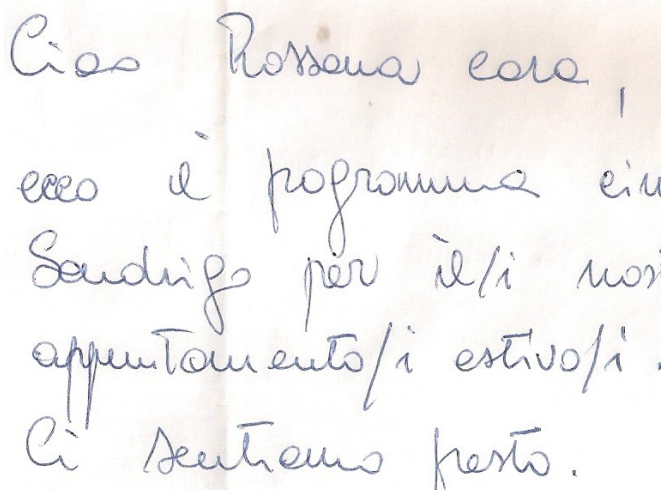 Ciao Rossana cara,
ecco il programma cin
Sandrigo per il/i nos
appuntamento/i estivo/i.
Ci sentiamo presto.